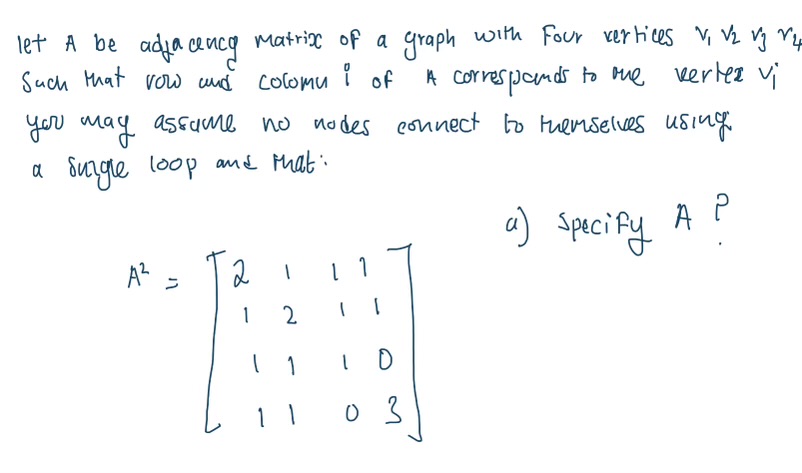 let A be adjacency matrix of a graph with Four vertices v₁ v₂ v₃ v₄
Such that row and colomn i of A corresponds to the vertex vᵢ
you may assume no nodes connect to themselves using
a single loop and that:
a) Specify A ?
A² = [ 2 1 1 1
1 2 1 1
1 1 1 0
1 1 0 3 ]